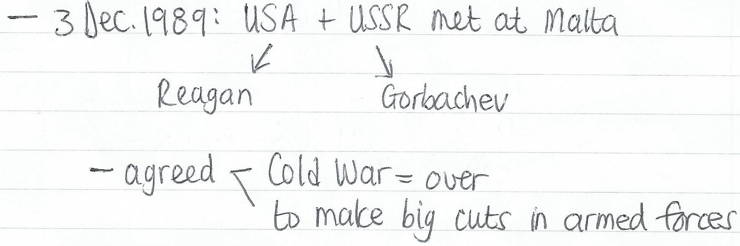 - 3 Dec. 1989: USA + USSR met at Malta
Reagan Gorbachev
- agreed - Cold War = over
to make big cuts in armed forces